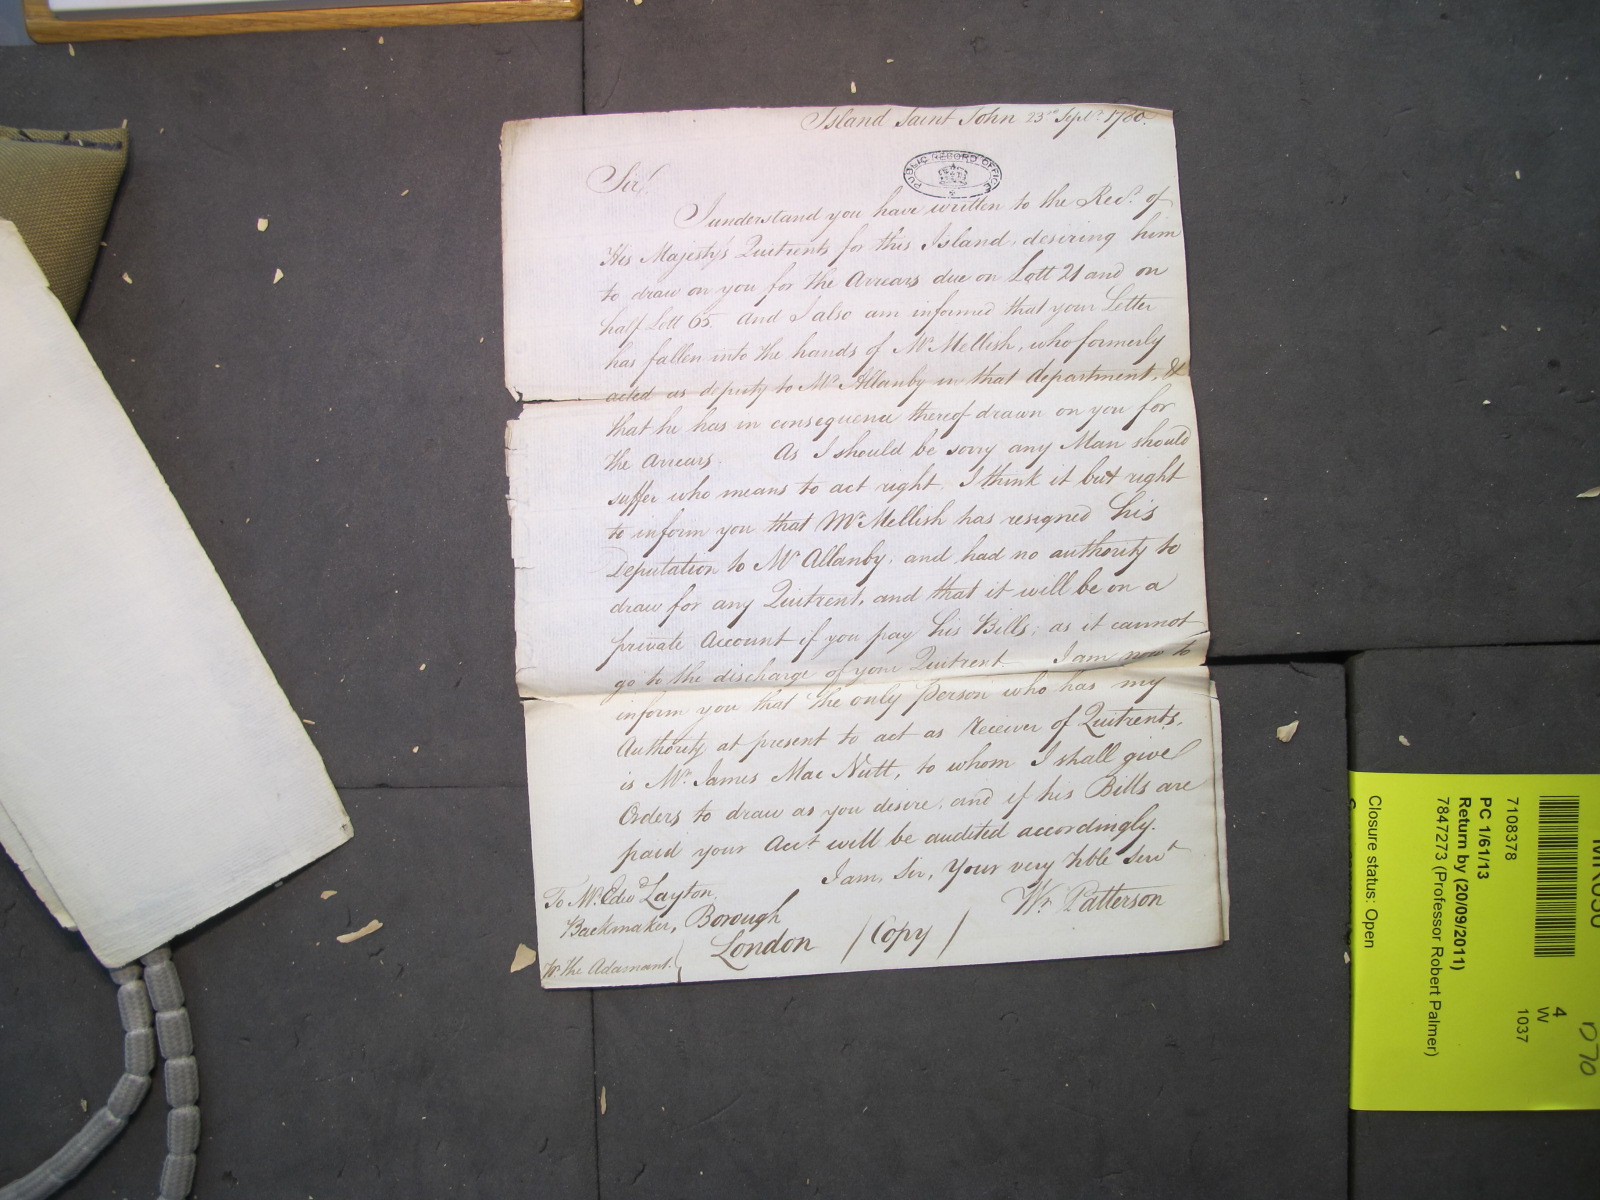 Island Saint John 23rd Septr. 1780.
PUBLIC RECORD OFFICE
Sir/.
I understand you have written to the Recr. of
His Majesty's Quitrents for this Island, desiring him
to draw on you for the Arrears due on Lott 21 and on
half Lott 65. And I also am informed that your Letter
has fallen into the hands of Mr. Mellish, who formerly
acted as deputy to Mr. Allanby in that department, &
that he has in consequence thereof drawn on you for
the Arrears. As I should be sorry any Man should
suffer who means to act right, I think it but right
to inform you that Mr. Mellish has resigned his
Deputation to Mr. Allanby, and had no authority to
draw for any Quitrent, and that it will be on a
private Account if you pay his Bills; as it cannot
go to the discharge of your Quitrent. I am now to
inform you that the only Person who has my
Authority at present to act as Receiver of Quitrents,
is Mr. James Mac Nutt, to whom I shall give
Orders to draw as you desire, and if his Bills are
paid your Acct. will be audited accordingly.
I am, Sir, Your very Hble Servt
Wr. Patterson
To Mr. Edwd Layton
Backmaker, Borough
London /Copy/
pr the Adamant.
7108378
PC 1/61/13
Return by (20/09/2011)
7847273 (Professor Robert Palmer)
Closure status: Open
4
W
1037
D70